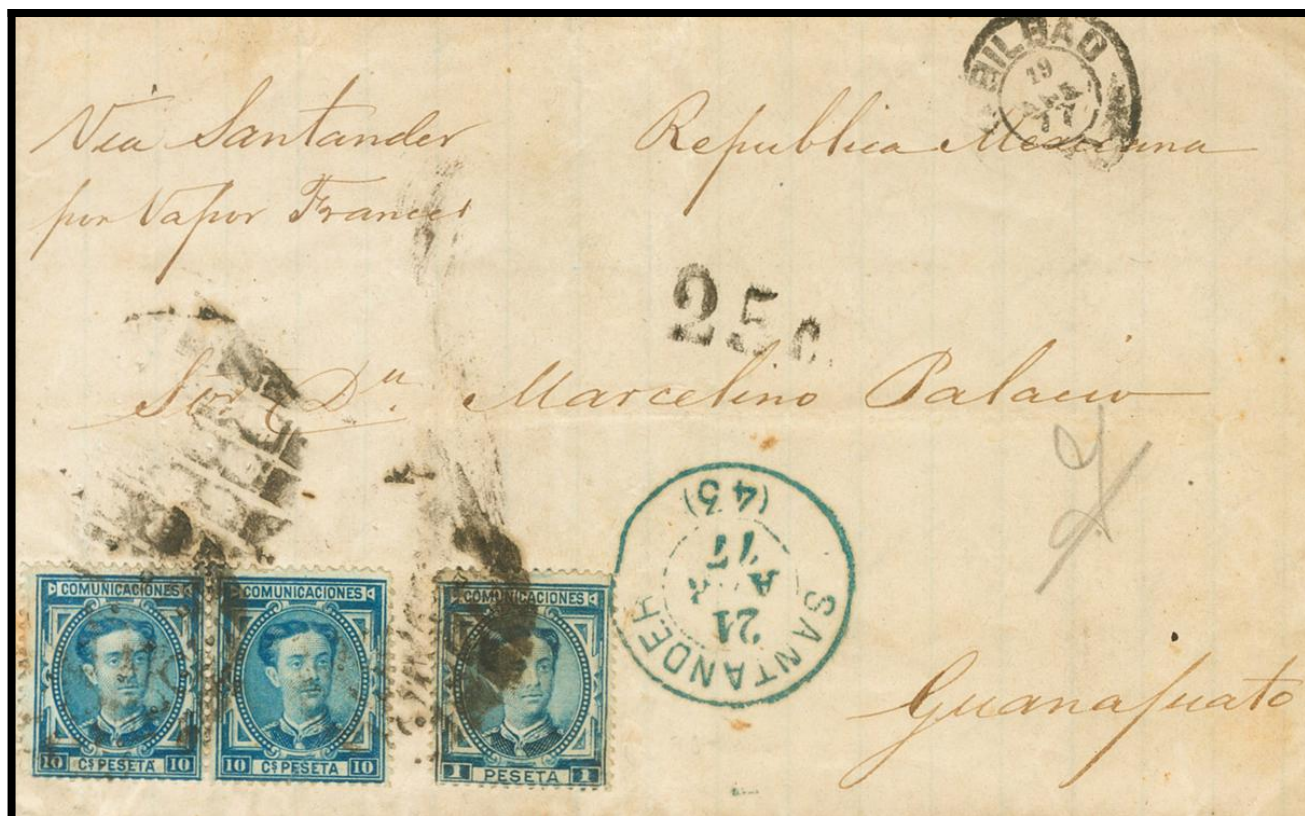 BILBAO
19
ABR
77
Via Santander
por Vapor Frances
Republica Mexicana
25 C.
Sor. Dn. Marcelino Palacio
SANTANDER
21
ABR
77
(43)
Guanajuato
COMUNICACIONES
10 CS PESETA 10
COMUNICACIONES
10 CS PESETA 10
COMUNICACIONES
1 PESETA 1